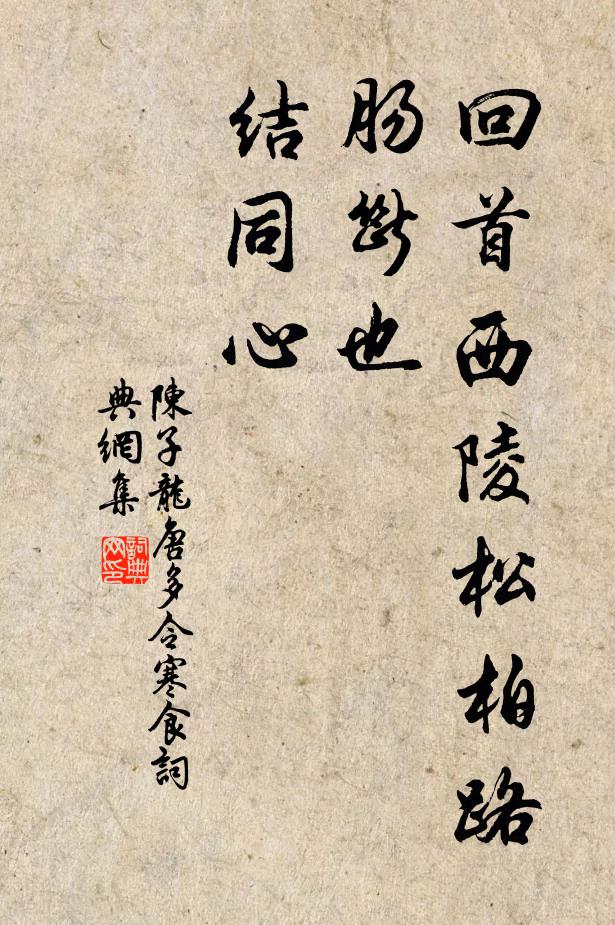 回首西陵松柏路
肠断也
结同心
陳子龍唐多令寒食詞
典網集
詞典
网印